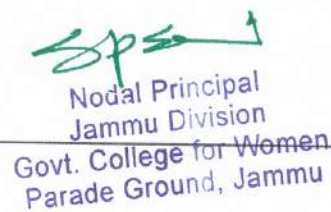 Nodal Principal
Jammu Division
Govt. College for Women
Parade Ground, Jammu